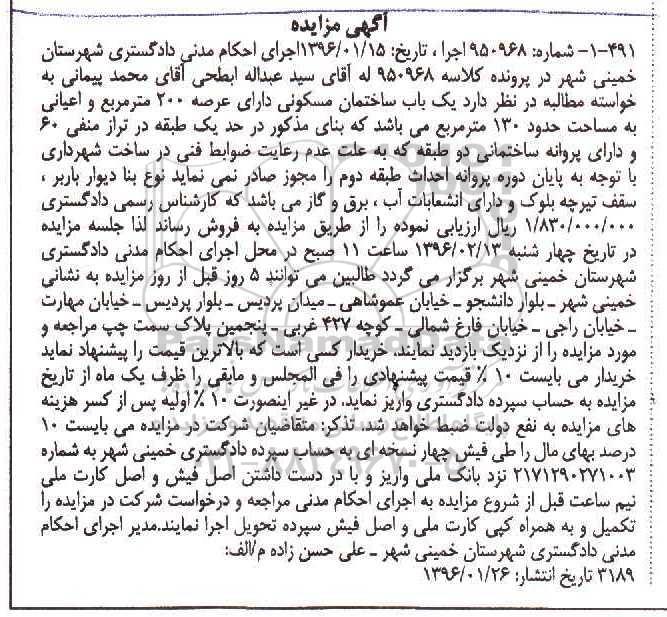 آگهی مزایده
۴۹۱-۱- شماره: ۹۵۰۹۶۸ اجرا ، تاریخ: ۱۳۹۶/۰۱/۱۵اجرای احکام مدنی دادگستری شهرستان
خمینی شهر در پرونده کلاسه ۹۵۰۹۶۸ له آقای سید عبداله ابطحی آقای محمد پیمانی به
خواسته مطالبه در نظر دارد یک باب ساختمان مسکونی دارای عرصه ۲۰۰ مترمربع و اعیانی
به مساحت حدود ۱۳۰ مترمربع می باشد که بنای مذکور در حد یک طبقه در تراز منفی ۶۰
و دارای پروانه ساختمانی دو طبقه که به علت عدم رعایت ضوابط فنی در ساخت شهرداری
با توجه به پایان دوره پروانه احداث طبقه دوم را مجوز صادر نمی نماید نوع بنا دیوار باربر ،
سقف تیرچه بلوک و دارای انشعابات آب ، برق و گاز می باشد که کارشناس رسمی دادگستری
۱/۸۳۰/۰۰۰/۰۰۰ ریال ارزیابی نموده را از طریق مزایده به فروش رساند لذا جلسه مزایده
در تاریخ چهار شنبه ۱۳۹۶/۰۲/۱۳ ساعت ۱۱ صبح در محل اجرای احکام مدنی دادگستری
شهرستان خمینی شهر برگزار می گردد طالبین می توانند ۵ روز قبل از روز مزایده به نشانی
خمینی شهر ـ بلوار دانشجو ـ خیابان عموشاهی ـ میدان پردیس ـ بلوار پردیس ـ خیابان مهارت
ـ خیابان راجی ـ خیابان فارغ شمالی ـ کوچه ۴۲۷ غربی ـ پنجمین پلاک سمت چپ مراجعه و
مورد مزایده را از نزدیک بازدید نمایند. خریدار کسی است که بالاترین قیمت را پیشنهاد نماید
خریدار می بایست ۱۰ ٪ قیمت پیشنهادی را فی المجلس و مابقی را ظرف یک ماه از تاریخ
مزایده به حساب سپرده دادگستری واریز نماید، در غیر اینصورت ۱۰ ٪ اولیه پس از کسر هزینه
های مزایده به نفع دولت ضبط خواهد شد. تذکر: متقاضیان شرکت در مزایده می بایست ۱۰
درصد بهای مال را طی فیش چهار نسخه ای به حساب سپرده دادگستری خمینی شهر به شماره
۲۱۷۱۲۹۰۲۷۱۰۰۳ نزد بانک ملی واریز و با در دست داشتن اصل فیش و اصل کارت ملی
نیم ساعت قبل از شروع مزایده به اجرای احکام مدنی مراجعه و درخواست شرکت در مزایده را
تکمیل و به همراه کپی کارت ملی و اصل فیش سپرده تحویل اجرا نمایند.مدیر اجرای احکام
مدنی دادگستری شهرستان خمینی شهر ـ علی حسن زاده م/الف:
۳۱۸۹ تاریخ انتشار: ۱۳۹۶/۰۱/۲۶
ParsNamadData